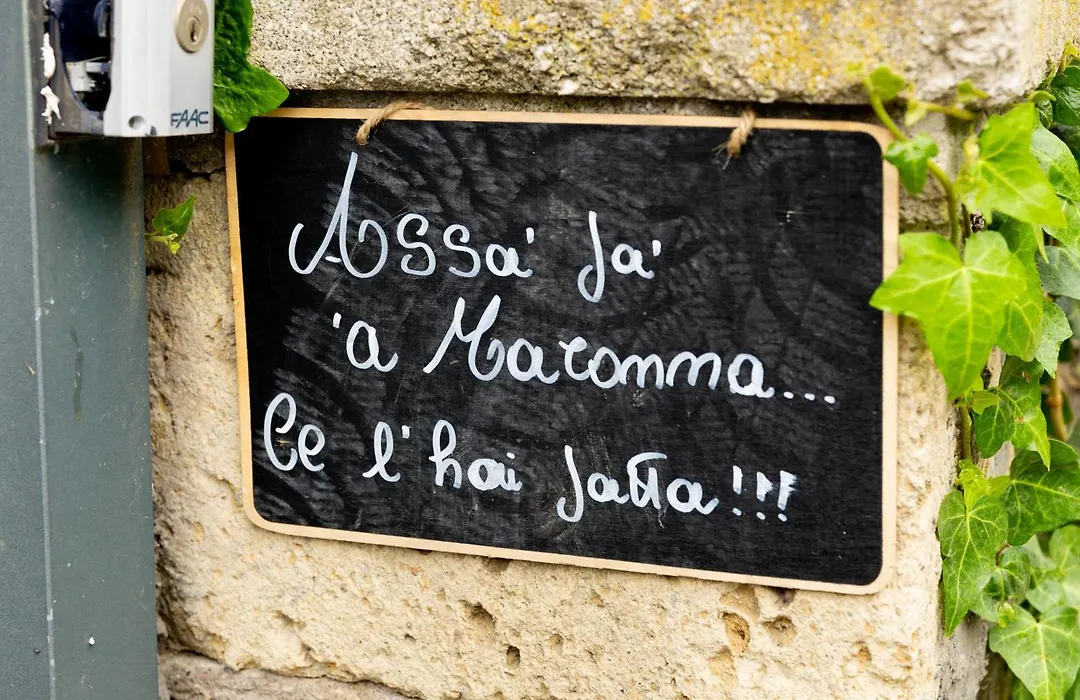 FAAC
Assa' fa'
'a Maronna...
Ce l'hai fatta!!!